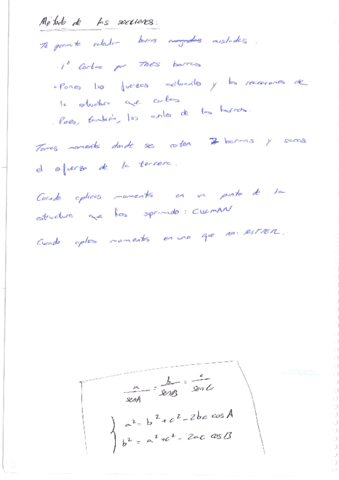 Método de las secciones.
Te permite calcular barras aisladas.
1º Cortas por TRES barras
- Pones las fuerzas actuando y las reacciones de
la estructura que cortas
- Pones, también, los de las barras.
Tomas momento donde se corten 2 barras y sacas
el esfuerzo de la tercera.
Cuando aplicas momentos en un punto de la
estructura que has : CULMAN
Cuando aplicas momentos en uno que no: RITTER.
a/senA = b/senB = c/senC
a² = b² + c² - 2bc cosA
b² = a² + c² - 2ac cosB